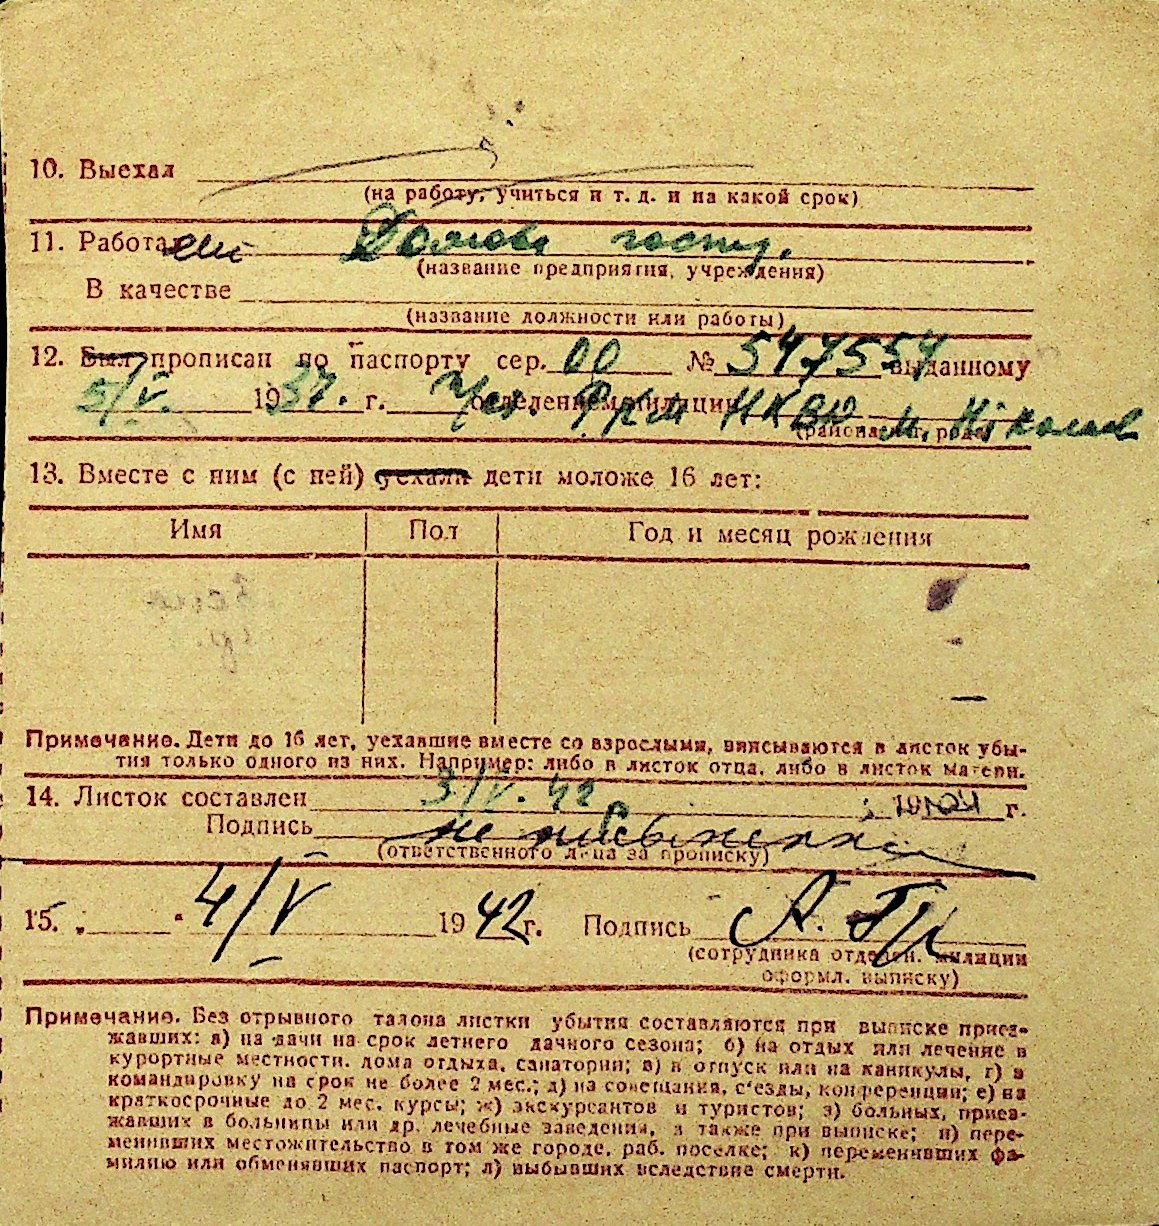 10. Выехал
(на работу, учиться и т. д. и на какой срок)
11. Работа
(название предприятия, учреждения)
В качестве
(название должности или работы)
12. Был прописан по паспорту сер. 00 № 547554 выданному
5/V. 1937. г. отделением милиции НКВД
(района, города)
13. Вместе с ним (с ней) уехали дети моложе 16 лет:
Имя Пол Год и месяц рождения
Примечание. Дети до 16 лет, уехавшие вместе со взрослыми, вписываются в листок убы-
тия только одного из них. Например: либо в листок отца, либо в листок матери.
14. Листок составлен 3/V. 42 194 г.
Подпись
(ответственного лица за прописку)
15. „ " 4/V 1942 г. Подпись
(сотрудника отделен. милиции
оформл. выписку)
Примечание. Без отрывного талона листки убытия составляются при выписке приез-
жавших: а) на дачи на срок летнего дачного сезона; б) на отдых или лечение в
курортные местности, дома отдыха, санатории; в) в отпуск или на каникулы, г) в
командировку на срок не более 2 мес.; д) на совещания, с'езды, конференции; е) на
краткосрочные до 2 мес. курсы; ж) экскурсантов и туристов; з) больных, приез-
жавших в больницы или др. лечебные заведения, а также при выписке; и) пере-
менивших местожительство в том же городе, раб. поселке; к) переменивших фа-
милию или обменявших паспорт; л) выбывших вследствие смерти.